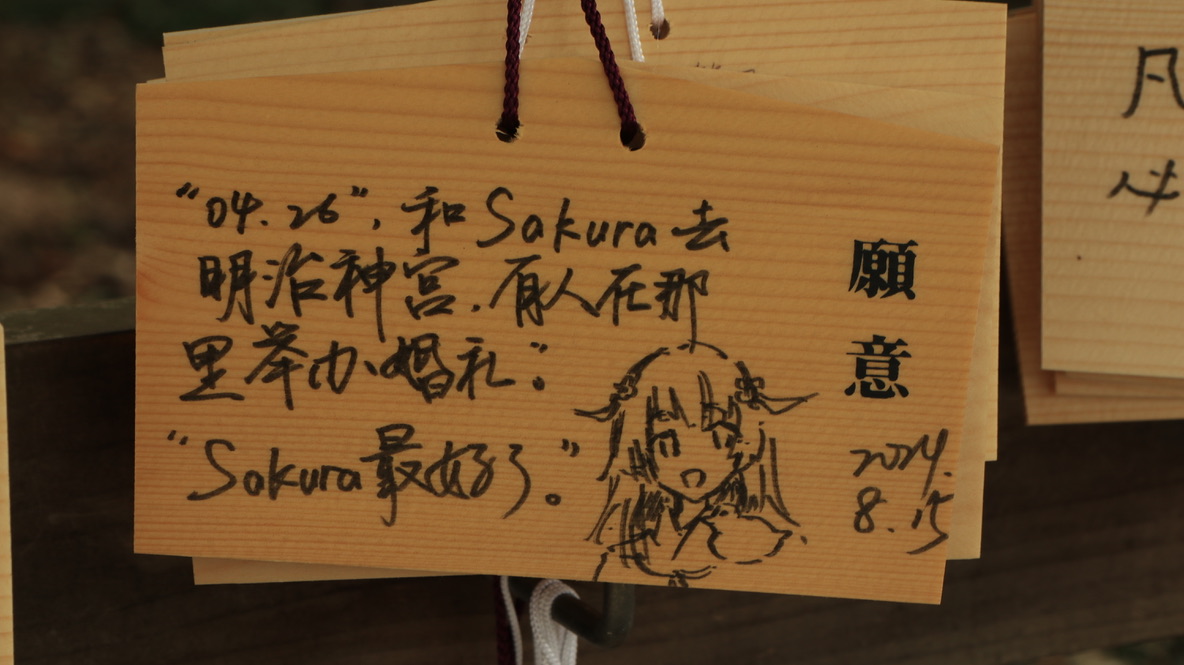 “04.26”，和Sakura去
明治神宫．有人在那
里举办婚礼。”
“Sakura最好了。”
願
意
2024.
8.15
凡